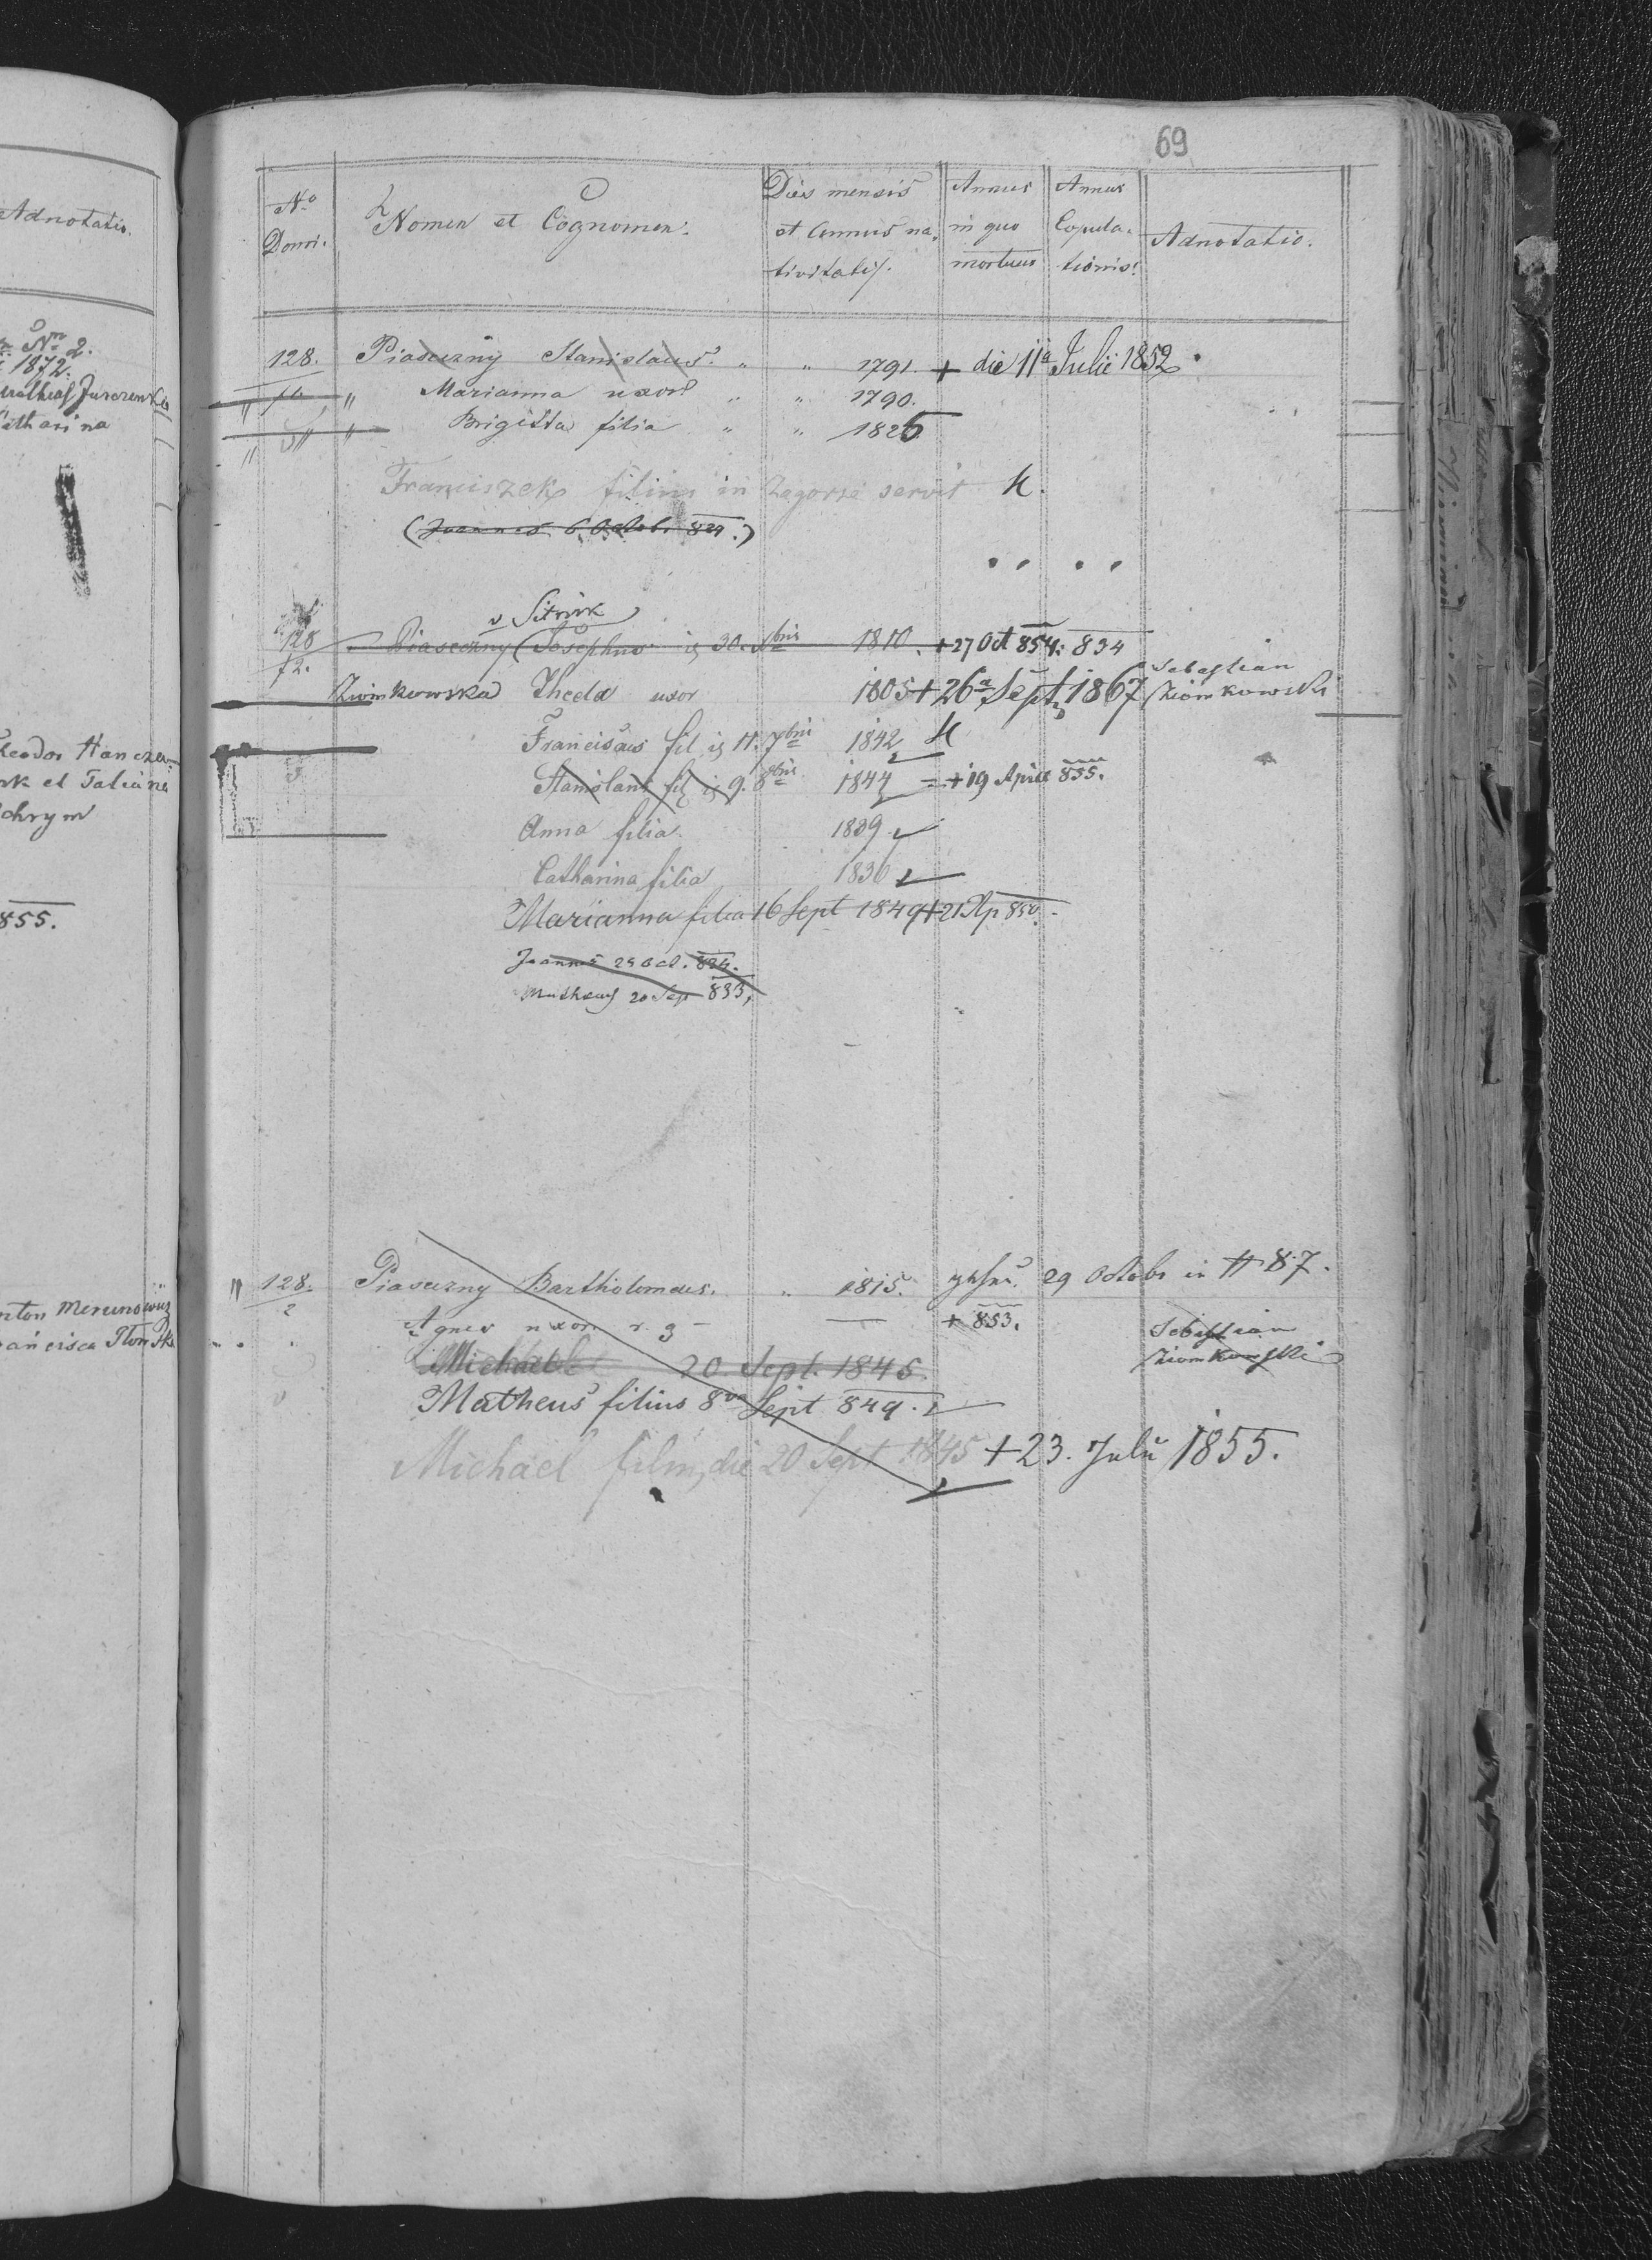 Adnotatio.
Nro 2.
1872.
Catharina
Theodor Hancza-
rk et Tatiana
chrym
855.
nton Merunowicz
ancisca
69
No Domi.
Nomen et Cognomen.
Dies mensis et Annus na, tivitatis.
Annus in quo mortuus
Annus Copula, tionis.
Adnotatio.
128. Piaseczny Stanislaus. " " 1791. + die 11a Julii 1852.
" Marianna uxor " " 1790.
" Brigitta filia " " 1826
Franciszek filius in Zagorze servit
(Joannes 6 Octobr 829.)
v Sitnik
128/2. Piaseczny (Josephus 30. Xbris 1810. +27 Oct 854. 834
Ziomkowska Thecla uxor 1805 + 26a Sept 1867 Sebastian Ziomkowski
Franciscus fil 11. 7bris 1842
Stanislaus fil 9. 8bris 1844 = + 19 April 855.
Anna filia 1839
Catharina filia 1836
Marianna filia 16 Sept 1849 + 21 Ap 850.
Joannes 29 Oct. 834.
Matheus 20 Sep 833,
" 128./2 Piaseczny Bartholomaeus. " 1815. 29 Octobr in # 87.
Agnes uxor — + 853. Sebastian Ziomkowski
Michael 20 Sept. 1845.
Matheus filius 8va Sept 849.
Michael filius, die 20 Sept 1845 + 23. Julii 1855.